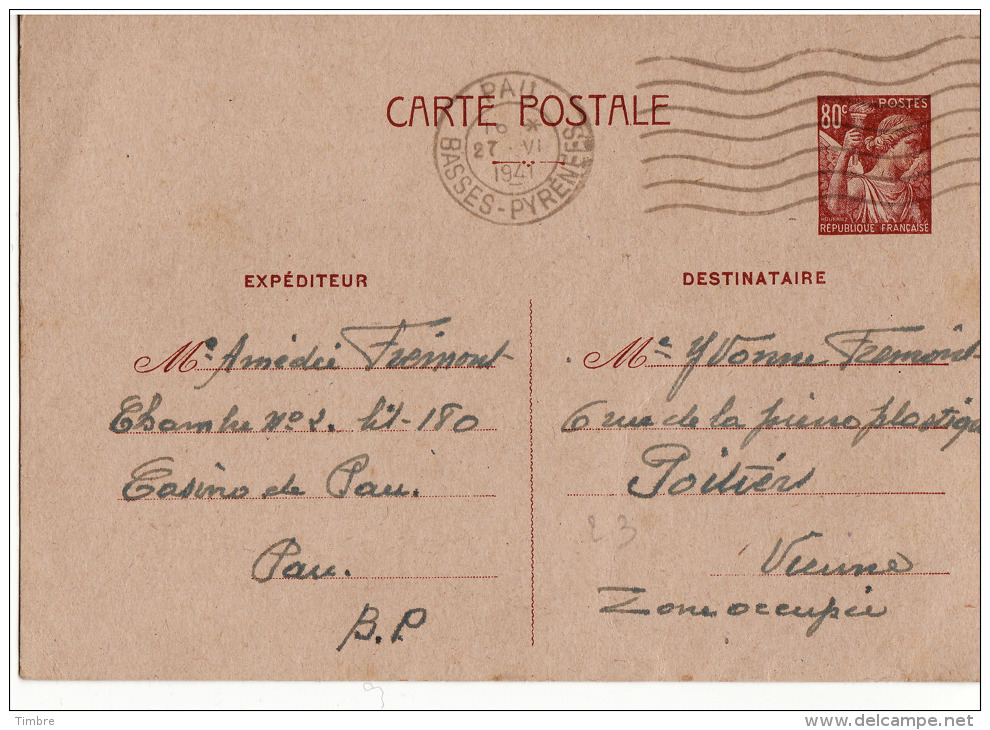 CARTE POSTALE
PAU
16 *
27 VI
1941
BASSES-PYRÉNÉES
80c POSTES
RÉPUBLIQUE FRANÇAISE
EXPÉDITEUR
Me Amédée Fremont
Chambre No 2. lit 180
Casino de Pau.
Pau.
B.P.
DESTINATAIRE
Me Yvonne Fremont
6 rue de la pierre plastique
Poitiers
23
Vienne
Zone occupée
Timbre
www.delcampe.net